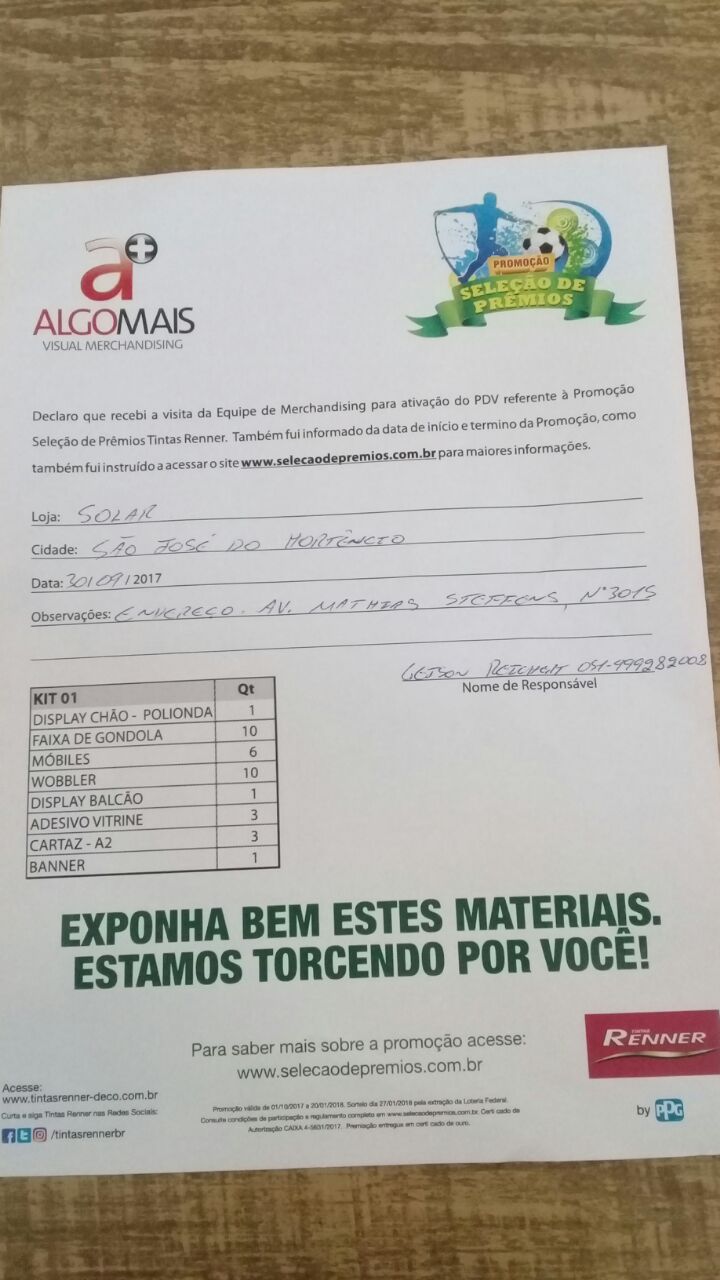 a+
ALGOMAIS
VISUAL MERCHANDISING
PROMOÇÃO
SELEÇÃO DE
PRÊMIOS
Declaro que recebi a visita da Equipe de Merchandising para ativação do PDV referente à Promoção
Seleção de Prêmios Tintas Renner. Também fui informado da data de início e termino da Promoção, como
também fui instruído a acessar o site www.selecaodepremios.com.br para maiores informações.
Loja: SOLAR
Cidade: SÃO JOSÉ DO HORTÊNCIO
Data: 30/09/2017
Observações: ENDEREÇO. AV. MATHIAS STEFFENS, Nº 3015
REICHERT 051-999282008
Nome de Responsável
KIT 01 Qt
DISPLAY CHÃO - POLIONDA 1
FAIXA DE GONDOLA 10
MÓBILES 6
WOBBLER 10
DISPLAY BALCÃO 1
ADESIVO VITRINE 3
CARTAZ - A2 3
BANNER 1
EXPONHA BEM ESTES MATERIAIS.
ESTAMOS TORCENDO POR VOCÊ!
Para saber mais sobre a promoção acesse:
www.selecaodepremios.com.br
TINTAS
RENNER
by PPG
Acesse:
www.tintasrenner-deco.com.br
Curta e siga Tintas Renner nas Redes Sociais:
/tintasrennerbr
Promoção válida de 01/10/2017 a 20/01/2018. Sorteio dia 27/01/2018 pela extração da Loteria Federal.
Consulte condições de participação e regulamento completo em www.selecaodepremios.com.br. Certi cado de
Autorização CAIXA 4-5631/2017. Premiação entregue em certi cado de ouro.